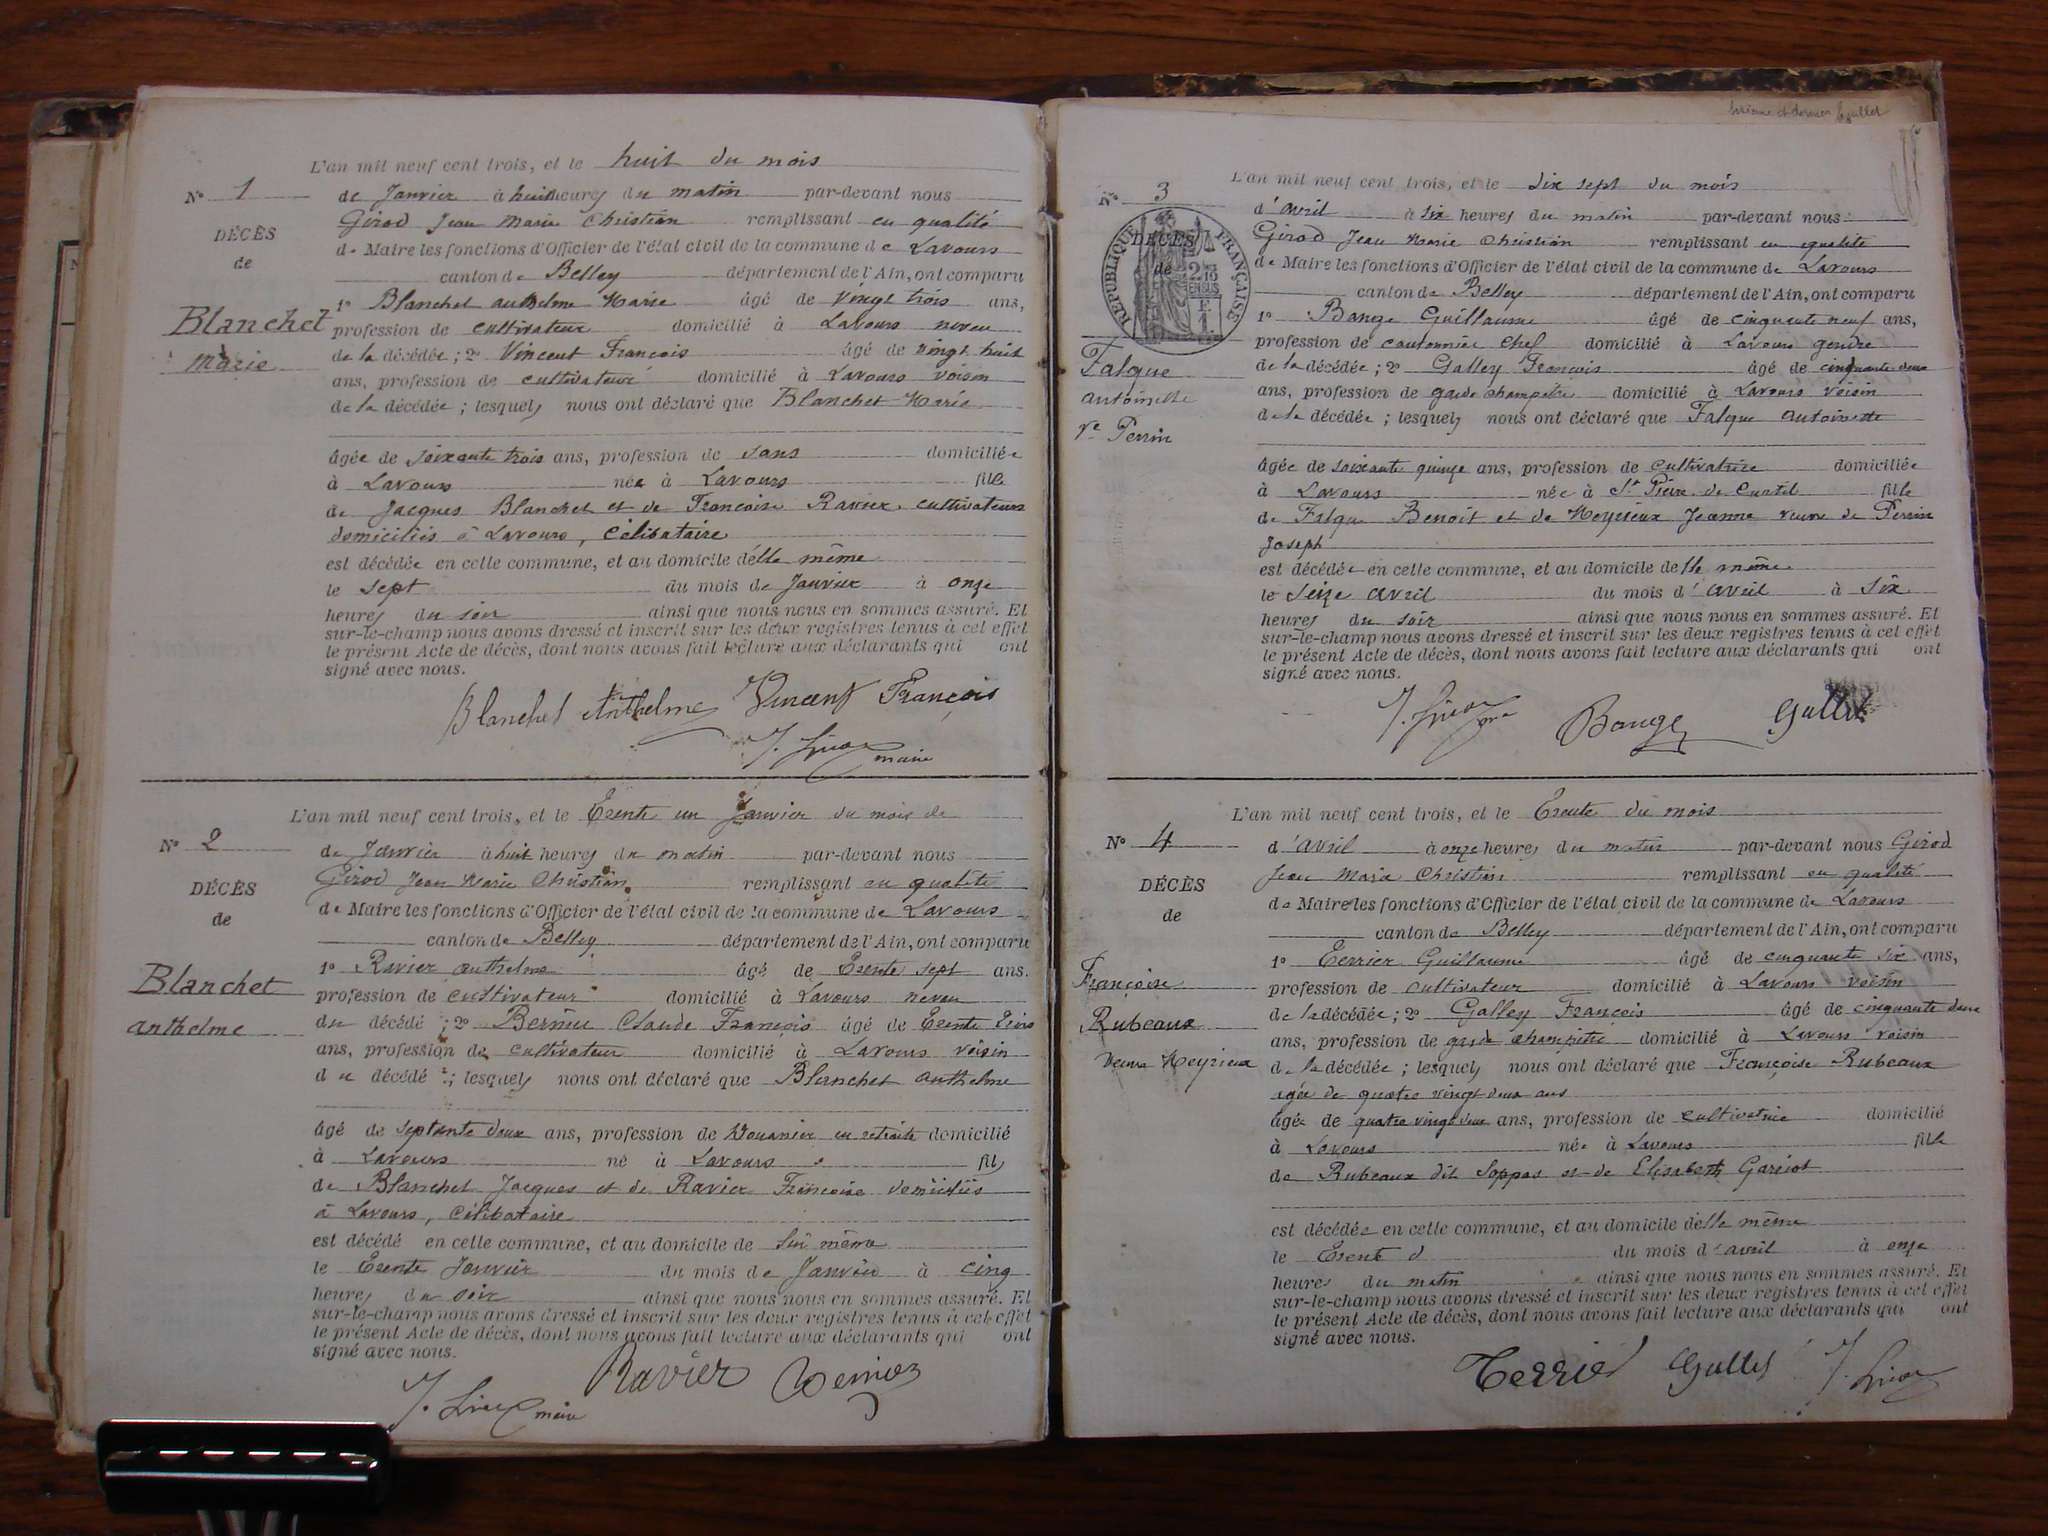 L'an mil neuf cent trois, et le huit du mois
N° 1 de Janvier à huit heures du matin par-devant nous
Girod Jean Marie Christian remplissant en qualité
DÉCÈS de Maire les fonctions d'Officier de l'état civil de la commune de Lavours
de canton de Belley département de l'Ain, ont comparu
1° Blanchet anthelme Marie âgé de vingt trois ans,
Blanchet profession de cultivateur domicilié à Lavours neveu
Marie de la décédée ; 2° Vincent François âgé de vingt huit
ans, profession de cultivateur domicilié à Lavours voisin
de la décédée ; lesquels nous ont déclaré que Blanchet Marie
âgée de soixante trois ans, profession de sans domiciliée
à Lavours née à Lavours fille
de Jacques Blanchet et de Francoise Ravier cultivateurs
domiciliés à Lavours, Célibataire
est décédée en cette commune, et au domicile d'elle même
le sept du mois de Janvier à onze
heures du soir ainsi que nous nous en sommes assuré. Et
sur-le-champ nous avons dressé et inscrit sur les deux registres tenus à cet effet
le présent Acte de décès, dont nous avons fait lecture aux déclarants qui ont
signé avec nous.
Blanchet Anthelme Vincent François
J. Girod maire
L'an mil neuf cent trois, et le Trente un Janvier du mois de
N° 2 de Janvier à huit heures du matin par-devant nous
Girod Jean Marie Christian remplissant en qualité
DÉCÈS de Maire les fonctions d'Officier de l'état civil de la commune de Lavours
de canton de Belley département de l'Ain, ont comparu
1° Ravier anthelme âgé de Trente sept ans.
Blanchet profession de cultivateur domicilié à Lavours neveu
anthelme du décédé ; 2° Claude François âgé de Trente trois
ans, profession de cultivateur domicilié à Lavours voisin
du décédé ; lesquels nous ont déclaré que Blanchet anthelme
âgé de septante deux ans, profession de Douanier en retraite domicilié
à Lavours né à Lavours fils
de Blanchet Jacques et de Ravier Françoise domiciliés
à Lavours, Célibataire
est décédé en cette commune, et au domicile de lui même
le Trente Janvier du mois de Janvier à cinq
heures du soir ainsi que nous nous en sommes assuré. Et
sur-le-champ nous avons dressé et inscrit sur les deux registres tenus à cet effet
le présent Acte de décès, dont nous avons fait lecture aux déclarants qui ont
signé avec nous.
Ravier
J. Girod maire
L'an mil neuf cent trois, et le dix sept du mois
N° 3 d'avril à six heures du matin par-devant nous
Girod Jean Marie Christian remplissant en qualité
DÉCÈS de Maire les fonctions d'Officier de l'état civil de la commune de Lavours
de canton de Belley département de l'Ain, ont comparu
RÉPUBLIQUE FRANÇAISE
1° Bange Guillaume âgé de cinquante neuf ans,
profession de cantonnier chef domicilié à Lavours gendre
Falque de la décédée ; 2° Galley François âgé de cinquante deux
antoinette ans, profession de garde champêtre domicilié à Lavours voisin
Ve Perrin de la décédée ; lesquels nous ont déclaré que Falque antoinette
âgée de soixante quinze ans, profession de cultivatrice domiciliée
à Lavours née à St Pierre de Curtil fille
de Falque Benoit et de Meyrieux Jeanne veuve de Perrin
Joseph
est décédée en cette commune, et au domicile d'elle même
le seize avril du mois d'avril à six
heures du soir ainsi que nous nous en sommes assuré. Et
sur-le-champ nous avons dressé et inscrit sur les deux registres tenus à cet effet
le présent Acte de décès, dont nous avons fait lecture aux déclarants qui ont
signé avec nous.
J. Girod Bange Galley
L'an mil neuf cent trois, et le Trente du mois
N° 4 d'avril à onze heures du matin par-devant nous Girod
Jean Marie Christian remplissant en qualité
DÉCÈS de Maire les fonctions d'Officier de l'état civil de la commune de Lavours
de canton de Belley département de l'Ain, ont comparu
1° Terrier Guillaume âgé de cinquante six ans,
Françoise profession de cultivateur domicilié à Lavours voisin
Rubeaux de la décédée ; 2° Galley François âgé de cinquante deux
ans, profession de garde champêtre domicilié à Lavours voisin
veuve Meyrieux de la décédée ; lesquels nous ont déclaré que Françoise Rubeaux
âgée de quatre vingt deux ans
âgée de quatre vingt deux ans, profession de cultivatrice domicilié
à Lavours née à Lavours fille
de Rubeaux dit Soppas et de Elisabeth Garriot
est décédée en cette commune, et au domicile d'elle même
le Trente d du mois d'avril à onze
heures du matin ainsi que nous nous en sommes assuré. Et
sur-le-champ nous avons dressé et inscrit sur les deux registres tenus à cet effet
le présent Acte de décès, dont nous avons fait lecture aux déclarants qui ont
signé avec nous.
Terrier Galley J. Girod